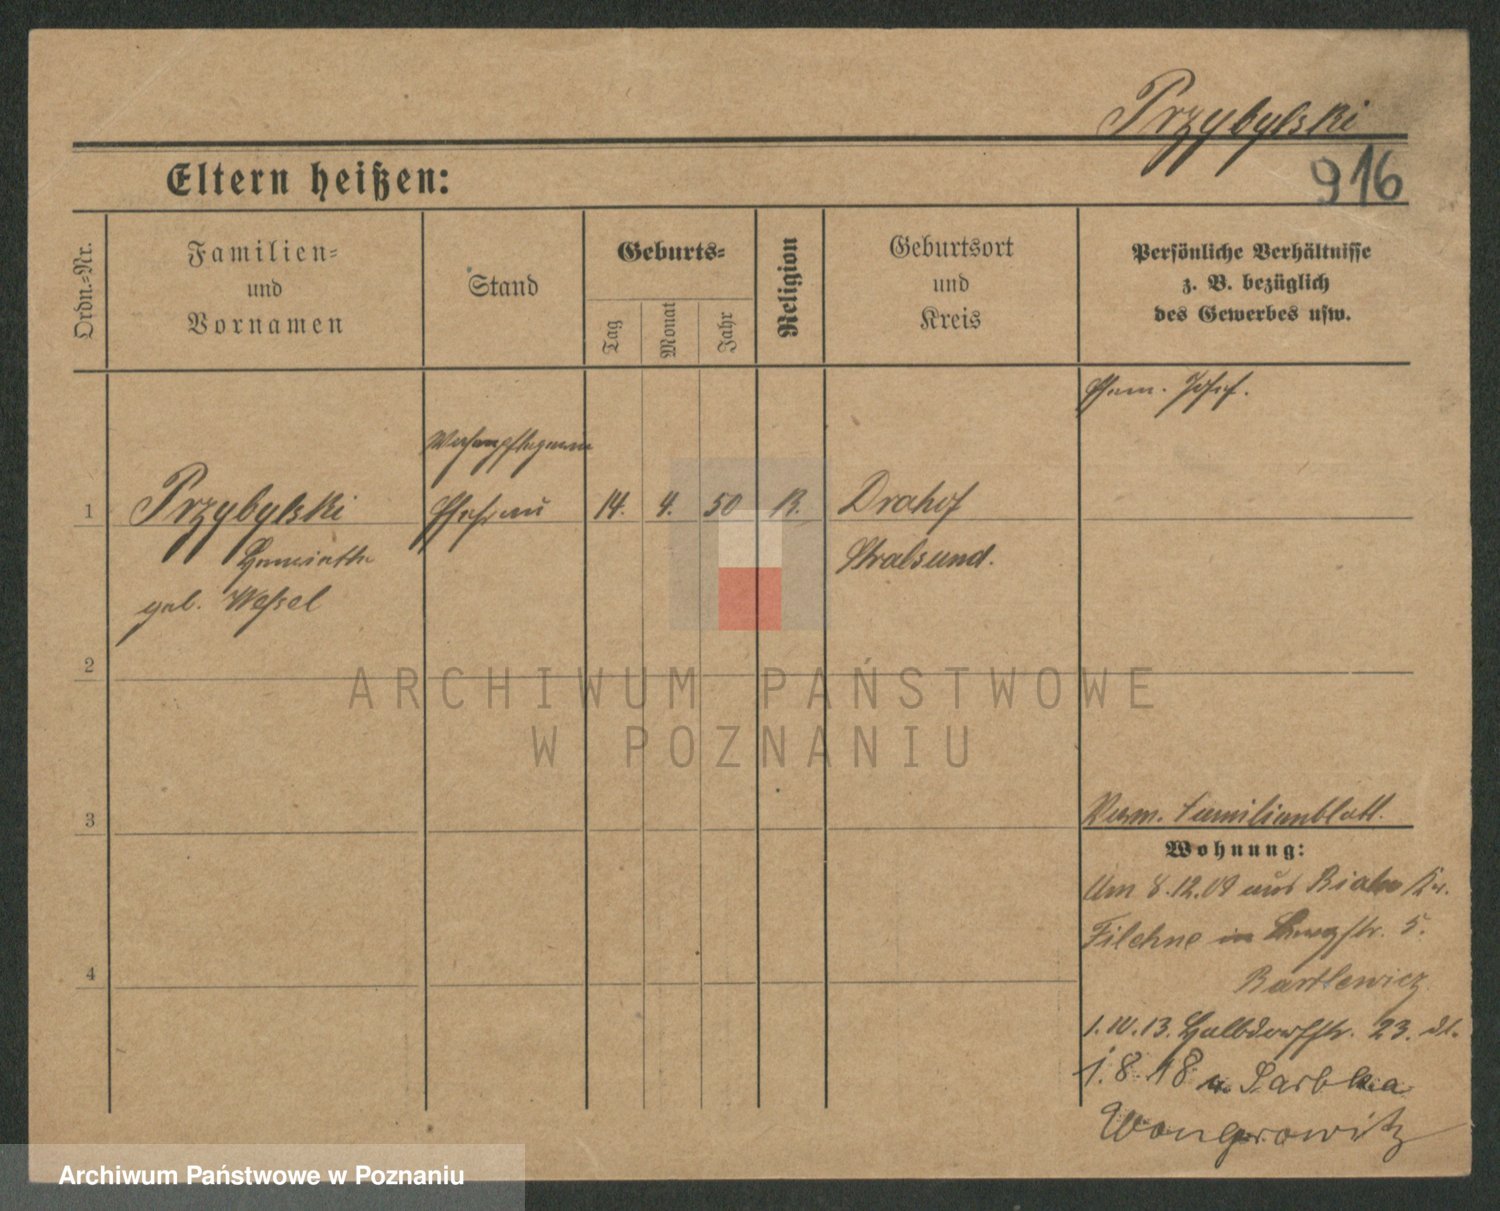 Przybylski
916
Eltern heißen:
Ordn.-Nr.
Familien-
und
Vornamen
Stand
Geburts-
Tag
Monat
Jahr
Religion
Geburtsort
und
Kreis
Persönliche Verhältnisse
z. B. bezüglich
des Gewerbes usw.
Josef.
1
Przybylski
Ehefrau
14.
4.
50
K.
Drahof
Henriette
Stralsund.
geb. Wessel
2
ARCHIWUM PAŃSTWOWE
W POZNANIU
3
Familienblatt.
Wohnung:
Am 8.12.09 aus Kr.
Filehne in str. 5.
4
Bartlewicz
1.10.13. Halbdorfstr. 23.
1.8.18 n. Sarbka
Wongrowitz
Archiwum Państwowe w Poznaniu